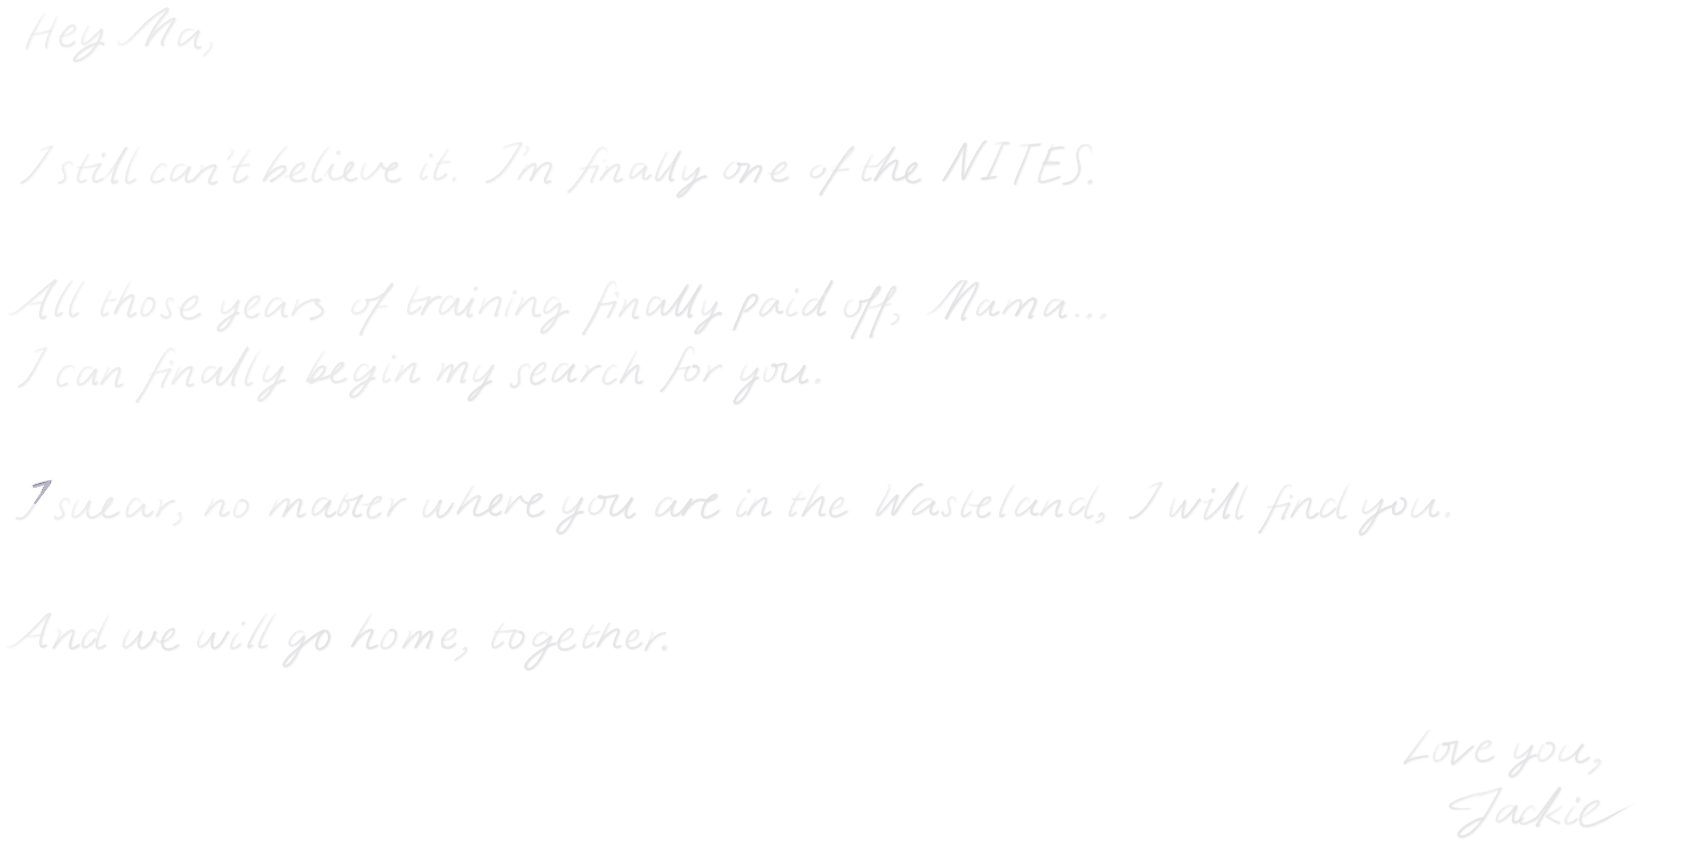 Hey Ma,
I still can't believe it. I'm finally one of the NITES.
All those years of training finally paid off, Mama...
I can finally begin my search for you.
I swear, no matter where you are in the Wasteland, I will find you.
And we will go home, together.
Love you,
Jackie